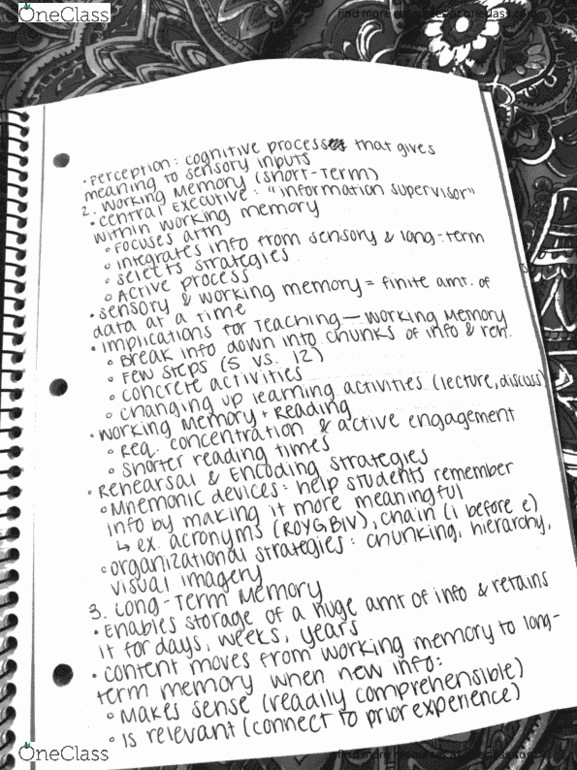 OneClass
find more at oneclass.com
• Perception: cognitive process that gives
meaning to sensory inputs
2. Working Memory (short-term)
• Central Executive: "information supervisor"
within working memory
◦ Focuses attn
◦ integrates info from sensory & long-term
◦ selects strategies
◦ Active process
• sensory & working memory = finite amt. of
data at a time
• Implications for Teaching — Working Memory
◦ Break info down into chunks of info & reh.
◦ Few steps (5 vs. 12)
◦ concrete activities
◦ changing up learning activities (lecture, discuss)
• Working Memory + Reading
◦ Req. concentration & active engagement
◦ shorter reading times
• Rehearsal & Encoding strategies
◦ Mnemonic devices: help students remember
info by making it more meaningful
↳ ex. acronyms (ROYGBIV), chain (i before e)
◦ organizational strategies: chunking, hierarchy,
visual imagery
3. Long-Term Memory
• Enables storage of a huge amt of info & retains
it for days, weeks, years
• content moves from working memory to long-
term memory when new info:
◦ Makes sense (readily comprehensible)
◦ is relevant (connect to prior experience)
OneClass